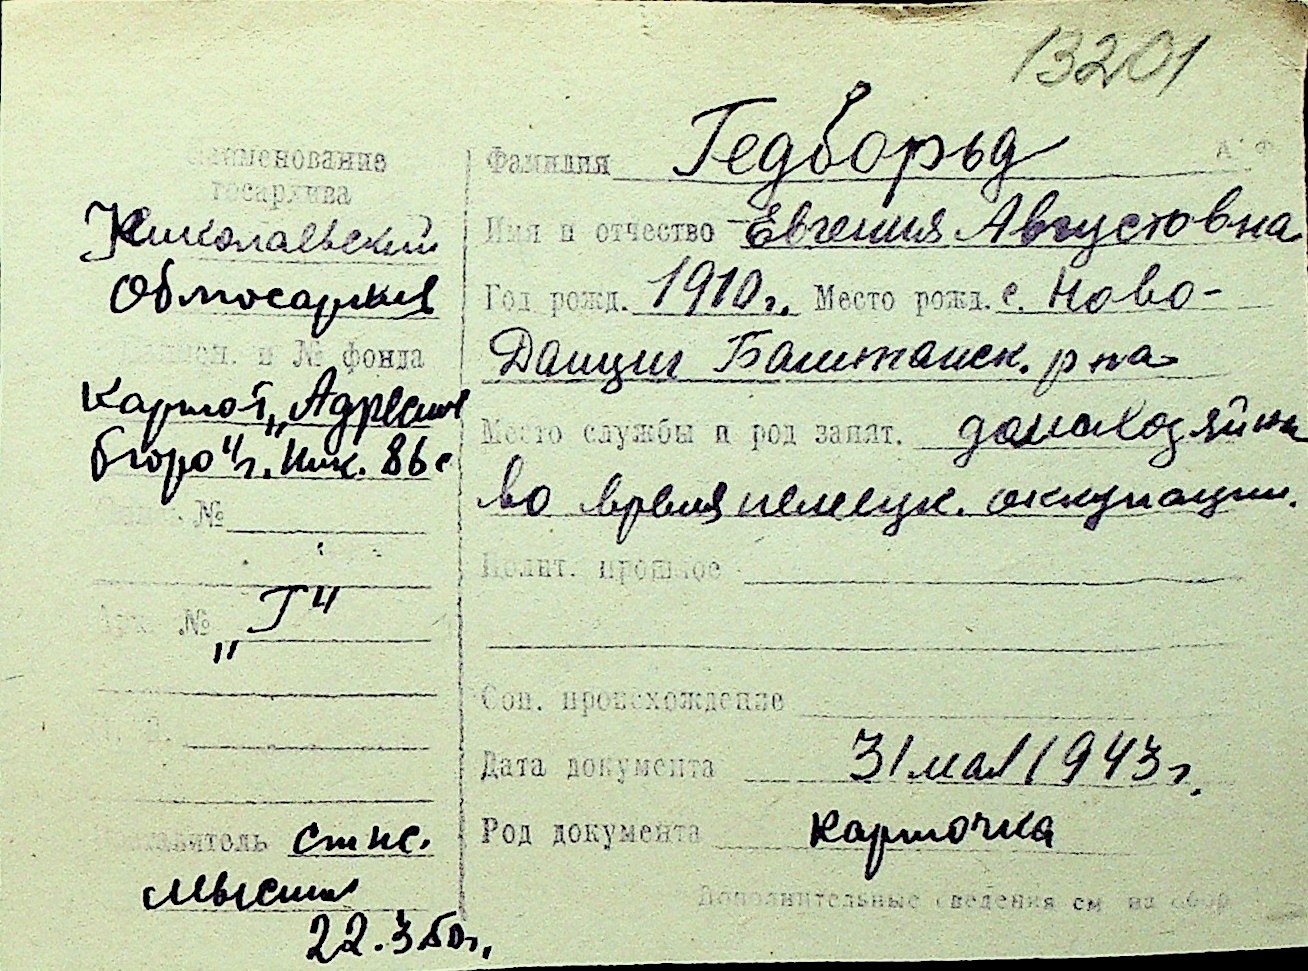 13201
Наименование
госархива
Николаевский
Облгосархив
фонда
Картот. „Адресное
бюро" г. Ник. 86 с
№
Арх. № „Г"
Составитель ст. нс.
22.3.50 г.
Фамилия Гедборьд
Имя и отчество Евгения Августовна
Год рожд. 1910 г. Место рожд. с. Ново-
Данциг Баштанск. р-на
Место службы и род занят. домохозяйка
во время немецк. оккупации.
Полит. прошлое
Соц. происхождение
Дата документа 31 мая 1943 г.
Род документа карточка
Дополнительные сведения см. на обор